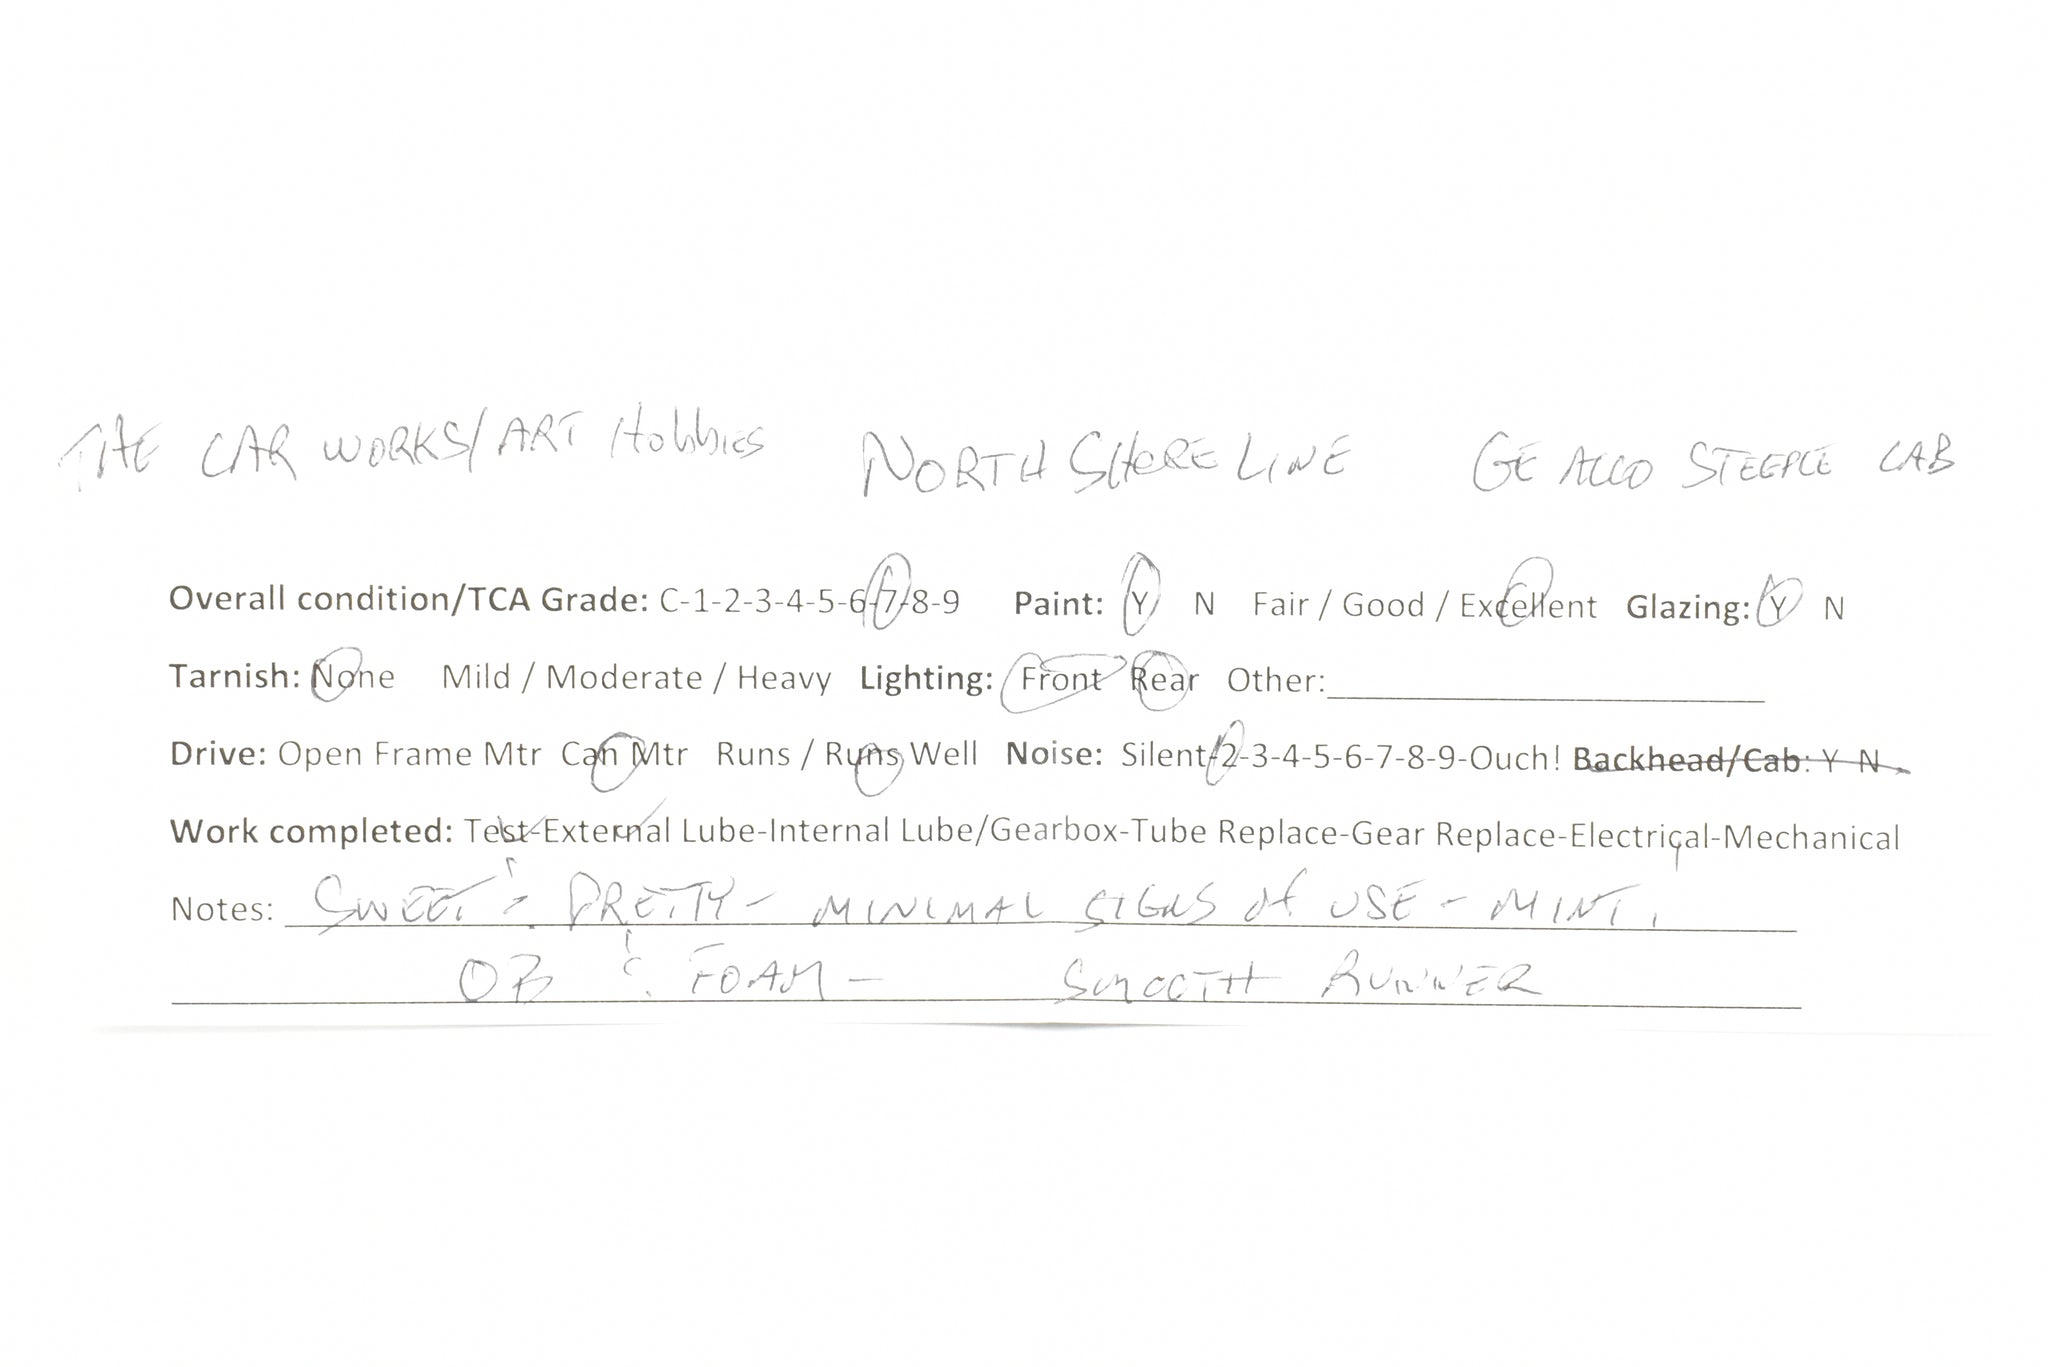 THE CAR WORKS/ART Hobbies NORTH SHORE LINE GE ALCO STEEPLE CAB
Overall condition/TCA Grade: C-1-2-3-4-5-6-7-8-9 Paint: Y N Fair / Good / Excellent Glazing: Y N
Tarnish: None Mild / Moderate / Heavy Lighting: Front Rear Other:
Drive: Open Frame Mtr Can Mtr Runs / Runs Well Noise: Silent-2-3-4-5-6-7-8-9-Ouch! Backhead/Cab: Y N
Work completed: Test-External Lube-Internal Lube/Gearbox-Tube Replace-Gear Replace-Electrical-Mechanical
Notes: SWEET & PRETTY - MINIMAL SIGNS of USE - MINT.
OB & FOAM - SMOOTH RUNNER